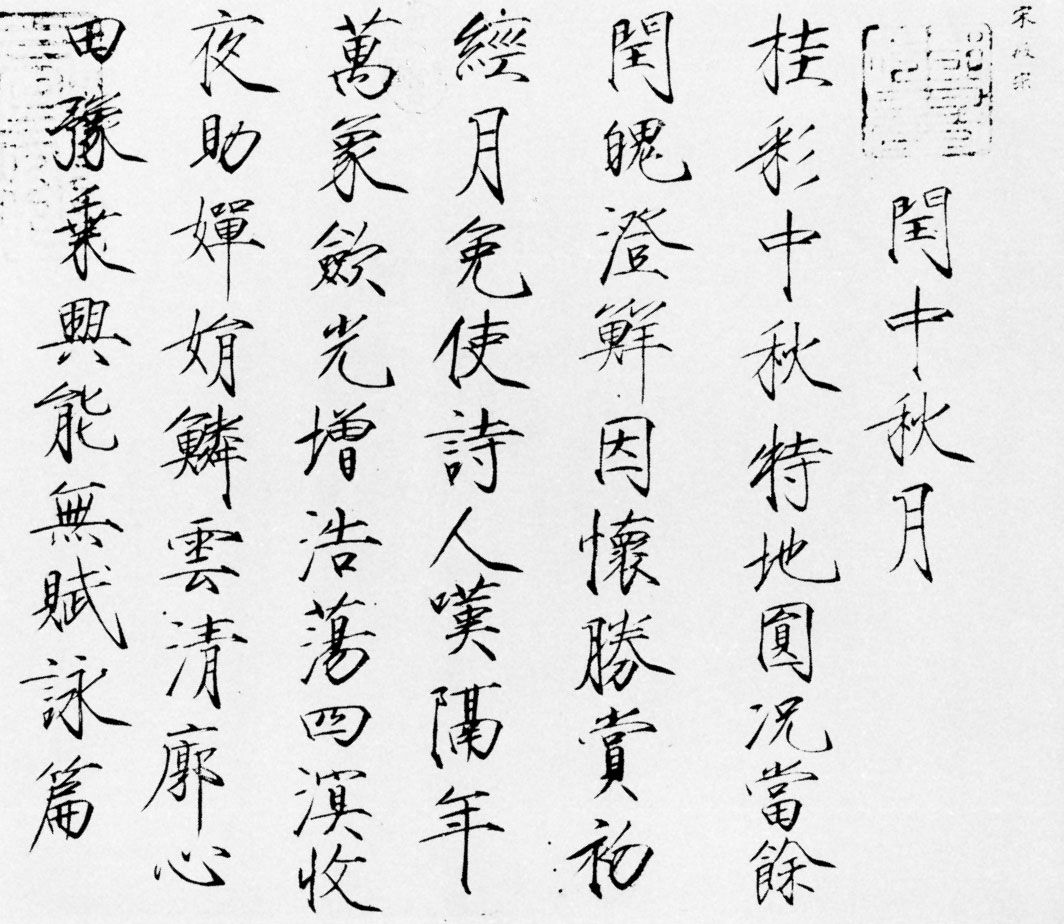 宋徽宗
閏中秋月
桂彩中秋特地圓況當餘
閏魄澄鮮因懷勝賞初
經月免使詩人嘆隔年
萬象歛光增浩蕩四溟收
夜助嬋娟鱗雲清廓心
田豫乗興能無賦詠篇